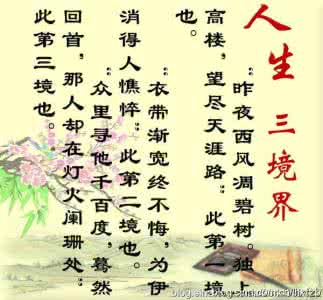 人生 三境界
“昨夜西风凋碧树。独上
高楼，望尽天涯路”此第一境
也。
“衣带渐宽终不悔，为伊
消得人憔悴”此第二境也。
“众里寻他千百度，蓦然
回首，那人却在灯火阑珊处”
此第三境也。